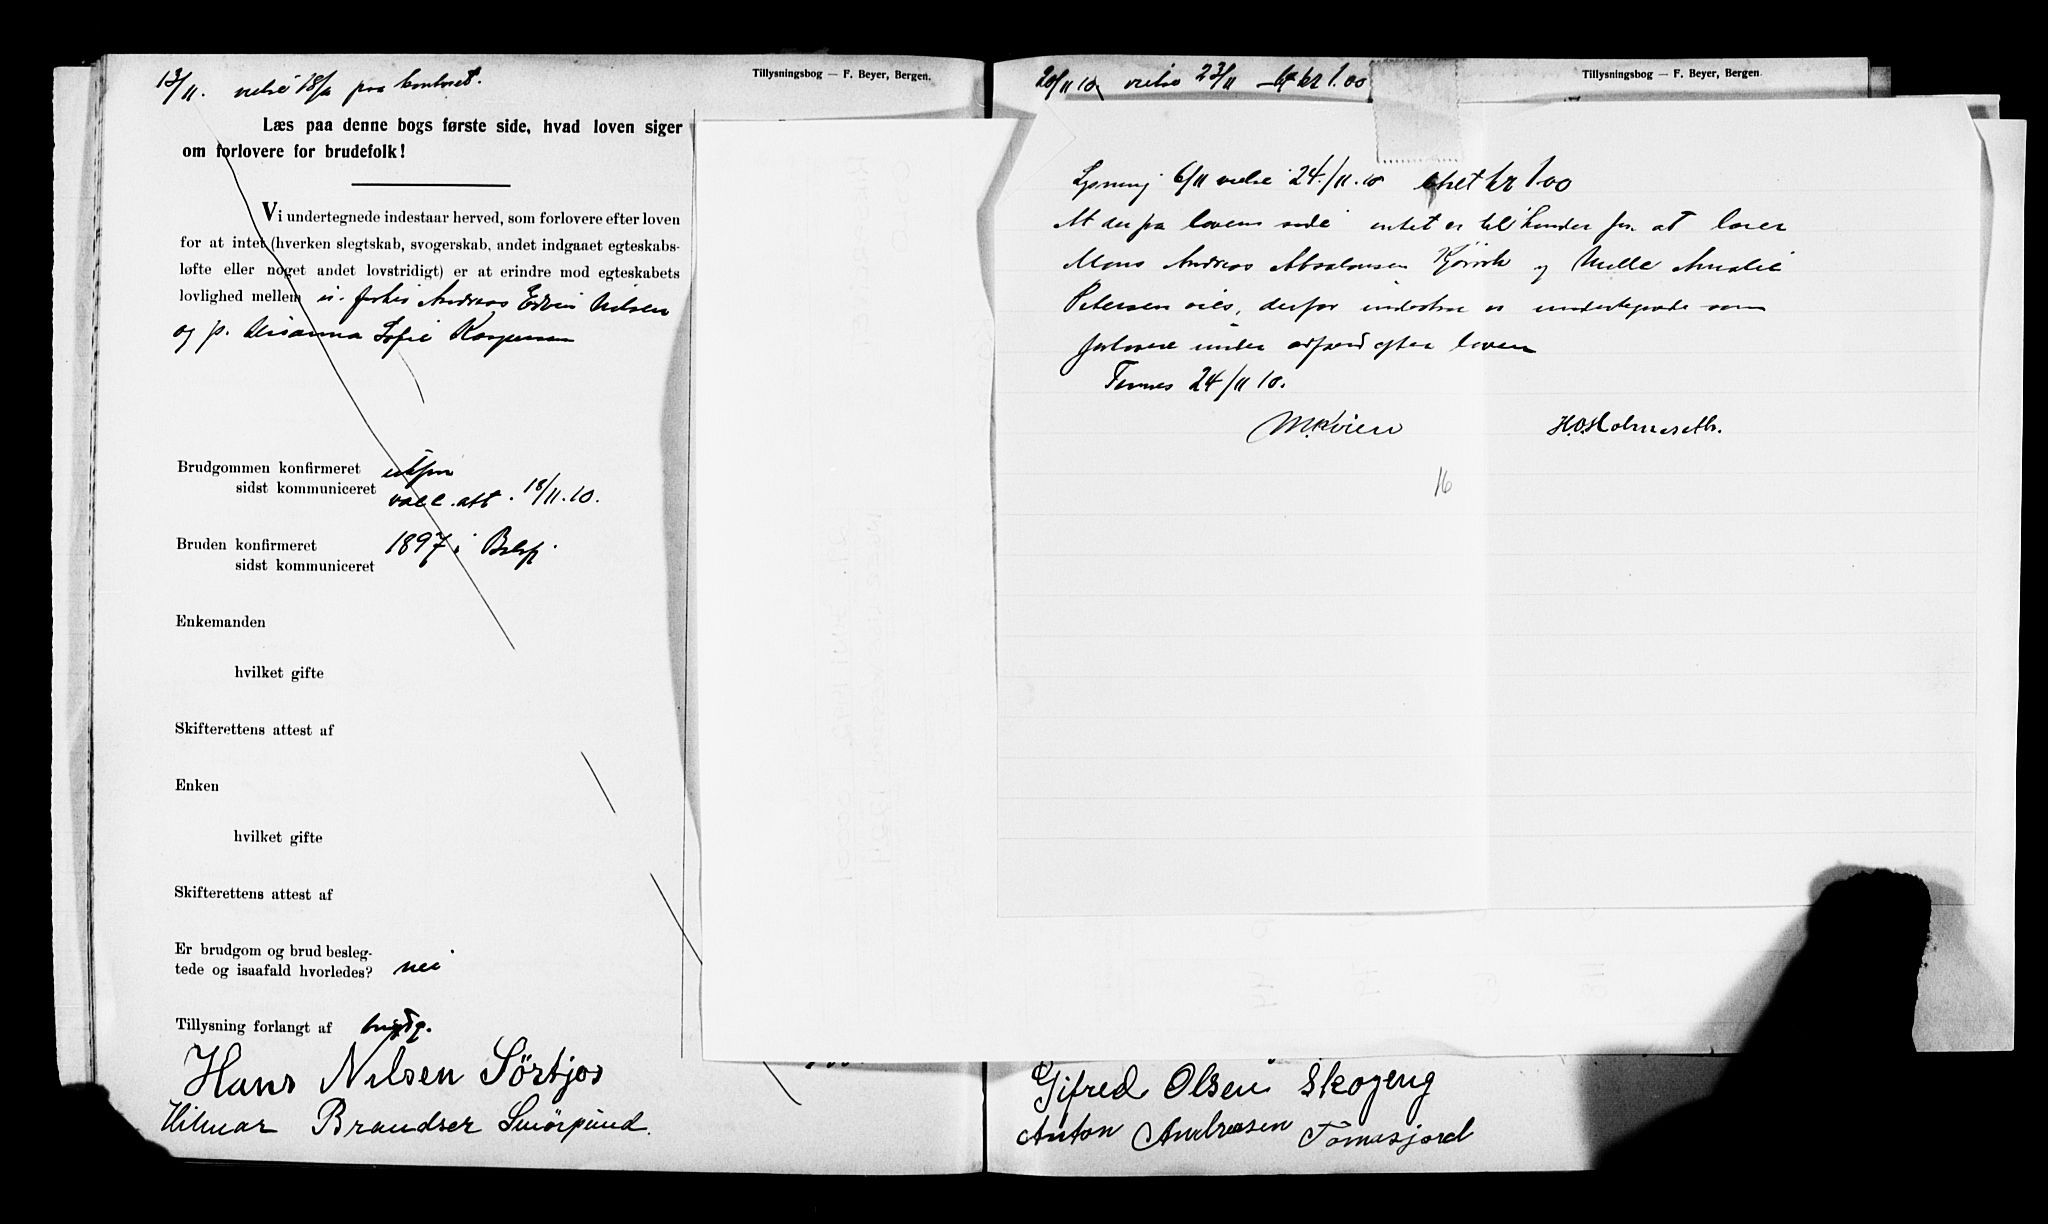 13/11. vielse 18/11 paa kontoret.
Tillysningsbog — F. Beyer, Bergen.
Læs paa denne bogs første side, hvad loven siger
om forlovere for brudefolk!
Vi undertegnede indestaar herved, som forlovere efter loven
for at intet (hverken slegtskab, svogerskab, andet indgaaet egteskabs-
løfte eller noget andet lovstridigt) er at erindre mod egteskabets
lovlighed mellem Andreas Edvin Nilsen
og p. Sofie Kaspersen
Brudgommen konfirmeret
sidst kommuniceret vacc. att. 18/11.10.
Bruden konfirmeret 1897 i Balsfj.
sidst kommuniceret
Enkemanden
hvilket gifte
Skifterettens attest af
Enken
hvilket gifte
Skifterettens attest af
Er brudgom og brud besleg-
tede og isaafald hvorledes? nei
Tillysning forlangt af brudg.
Hans Nilsen Sörtjos
Hilmar Brandser Smörsund.
20/11 10 vielse 23/11 kr 1.00
Tillysningsbog — F. Beyer, Bergen.
Lysning 6/11 vielse 24/11.10 kr 1.00
At der paa lovens side intet er til hinder for at lader
Mons Andreas Absalonsen og Amalie
Petersen vies, derfor indestaar vi undertegnede som
forlovere under ansvar efter loven
24/11 10.
M. Kvien H.O. Holmeseth.
16
Gifred Olsen Skogeng
Anton Andreasen Tömasjord